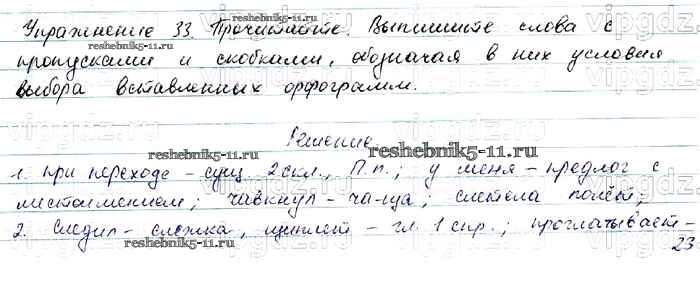 Упражнение 33. Прочитайте. Выпишите слова с
пропусками и скобками, обозначая в них условия
выбора вставленных орфограмм.
Решение
1. при переходе – сущ. 2 скл., П.п.; у меня – предлог с
местоимением; чавкнул – ча-ща; слетела полёт;
2. следил – слежка, щиплет – гл. 1 спр.; проглатывает –
23
reshebnik5-11.ru
reshebnik5-11.ru
reshebnik5-11.ru
reshebnik5-11.ru
reshebnik5-11.ru
reshebnik5-11.ru
vipgdz
vipgdz